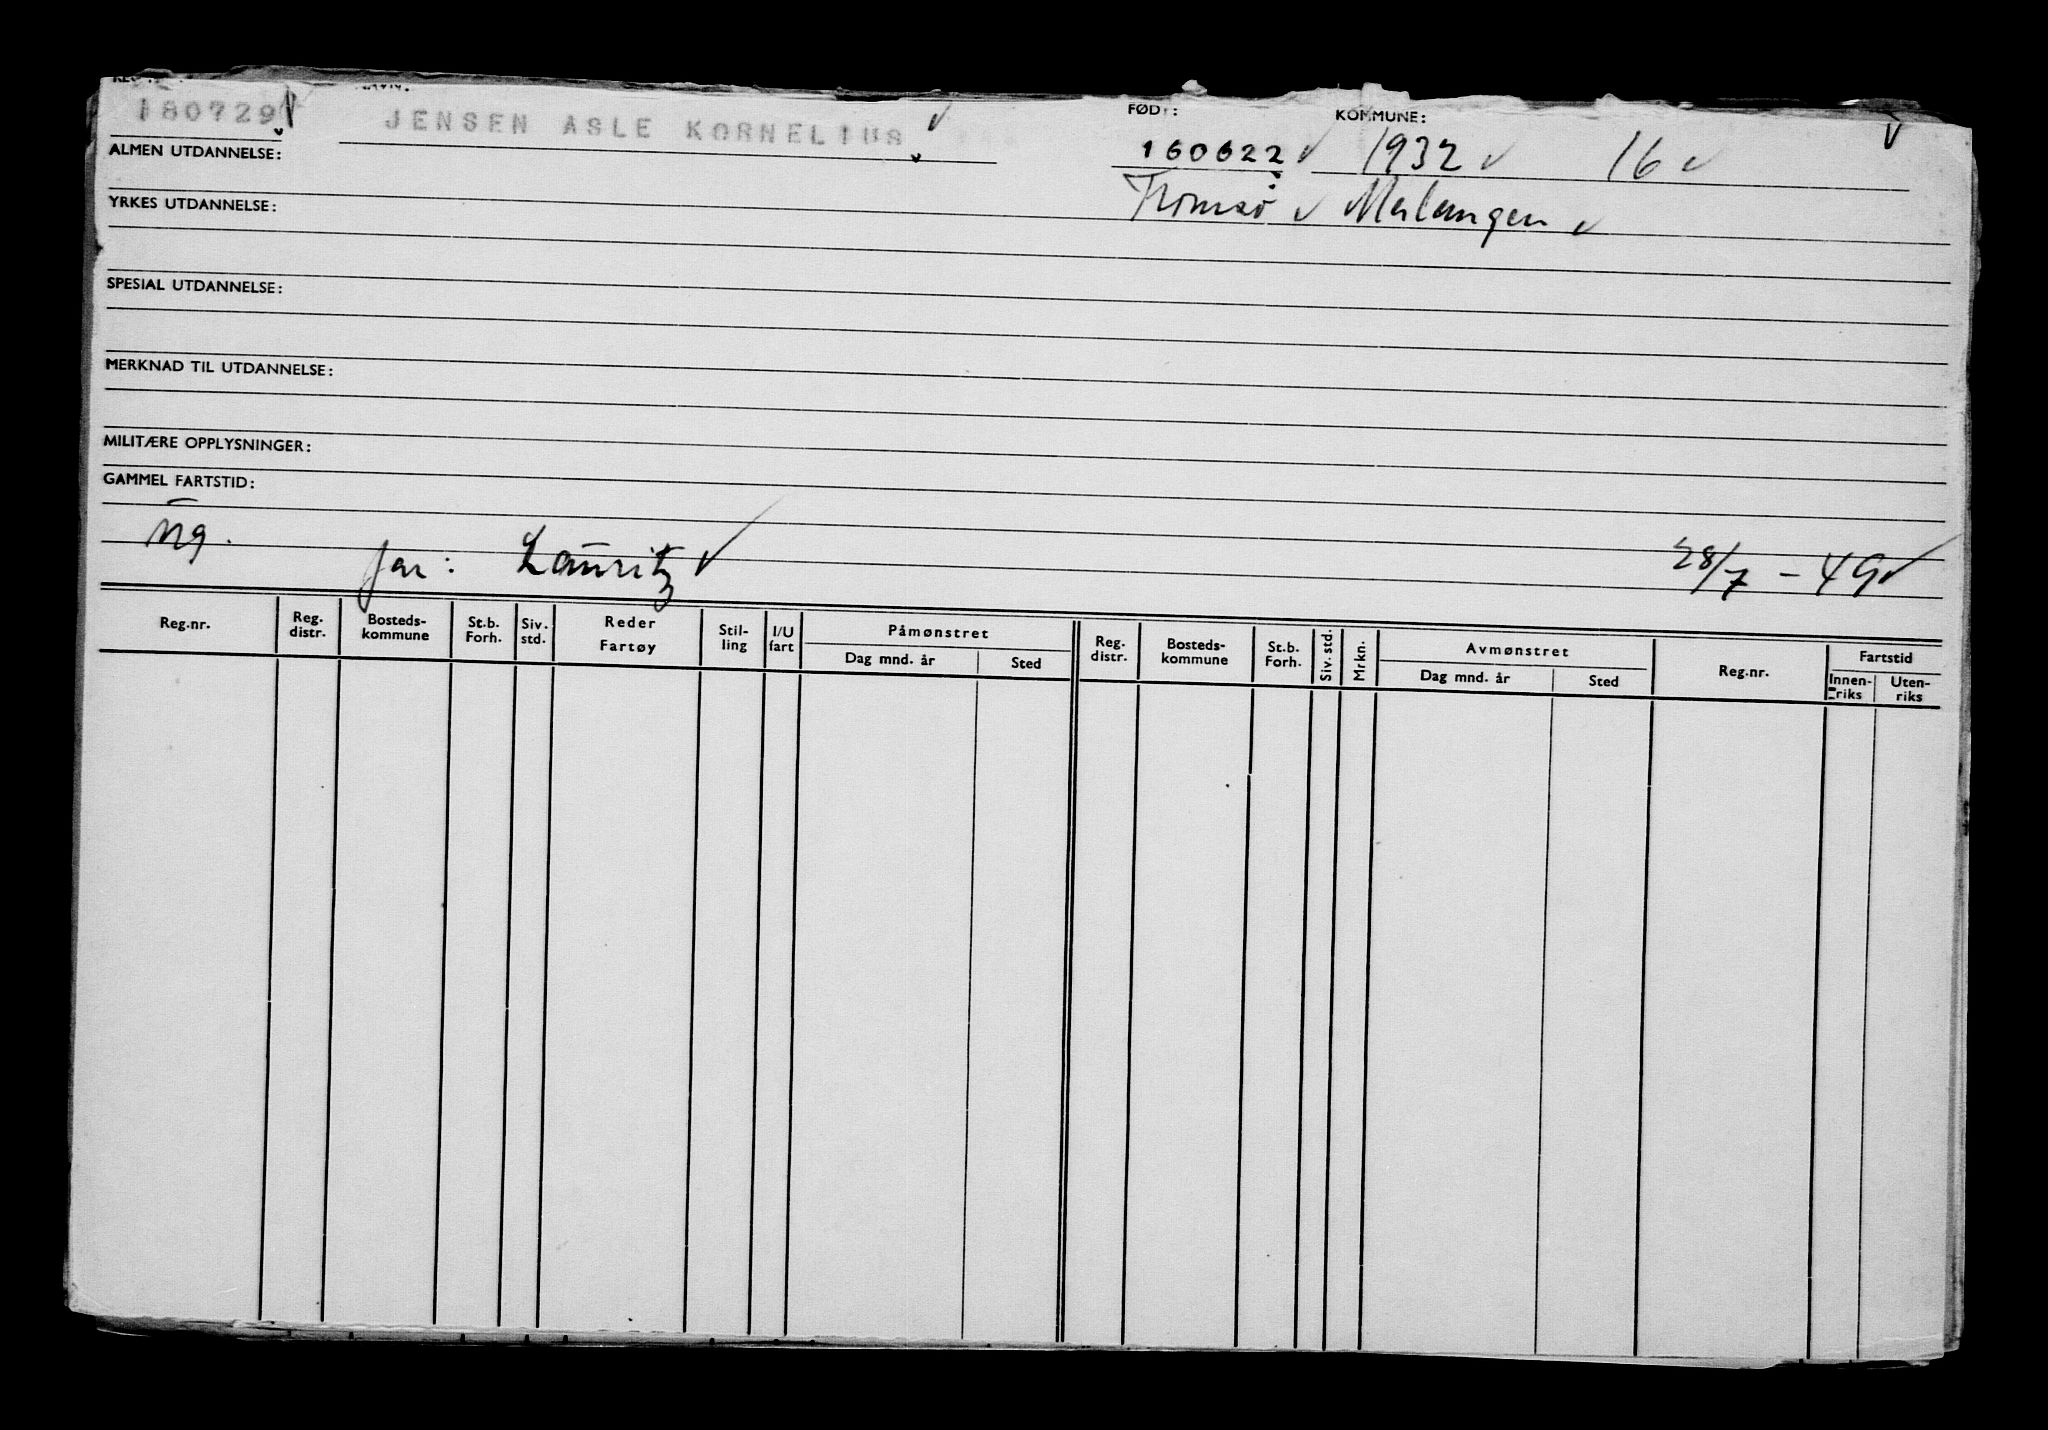 180729 JENSEN ASLE KORNELIUS FØDT: KOMMUNE:
160622 1932 16
ALMEN UTDANNELSE:
Tromsø Malangen
YRKES UTDANNELSE:
SPESIAL UTDANNELSE:
MERKNAD TIL UTDANNELSE:
MILITÆRE OPPLYSNINGER:
GAMMEL FARTSTID:
ug. far: Lauritz 28/7 - 49
Reg.nr. Reg. distr. Bosteds-kommune St.b. Forh. Siv. std. Reder Fartøy Stil-ling I/U fart Påmønstret Dag mnd. år Sted Reg. distr. Bosteds-kommune St.b. Forh. Siv. std. Mrkn. Avmønstret Dag mnd. år Sted Reg.nr. Fartstid Innen-riks Uten-riks